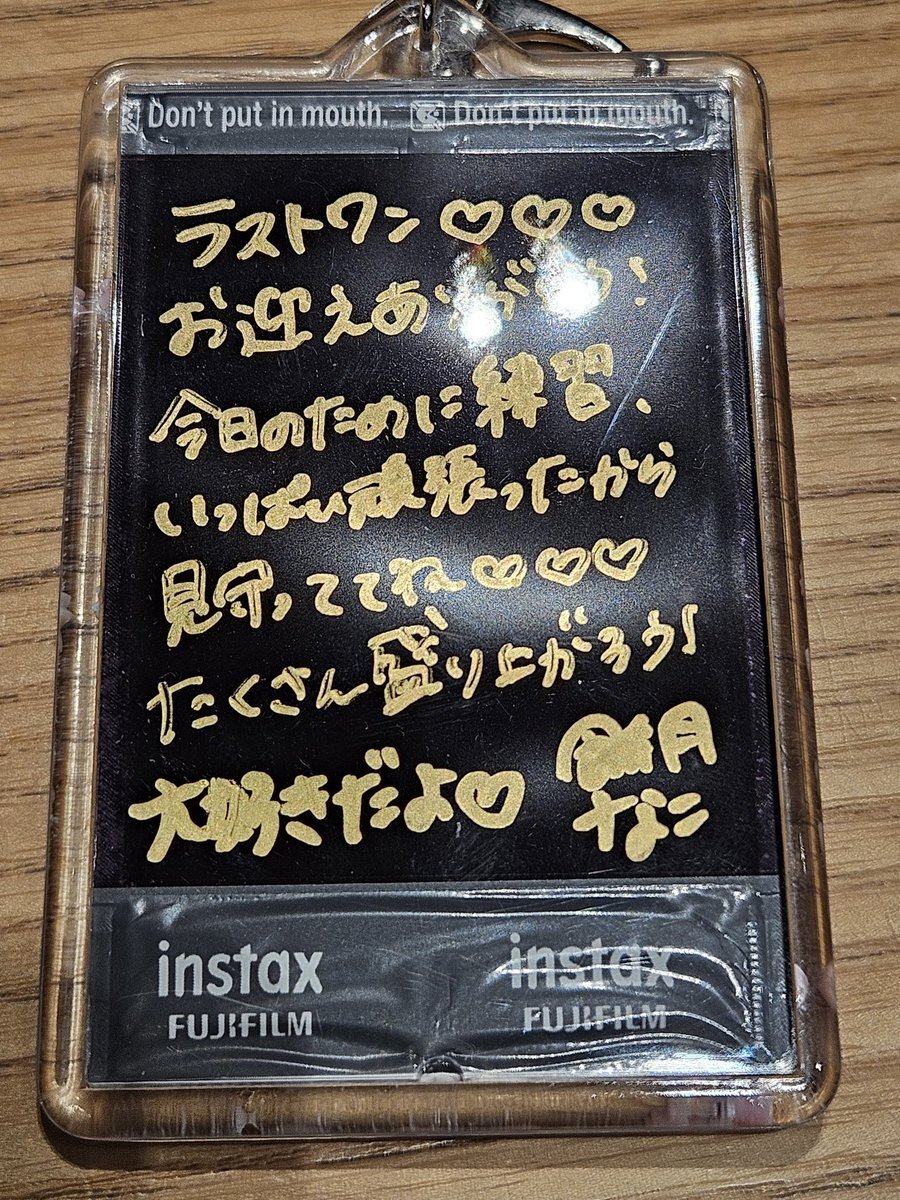 Don't put in mouth. Don't put in mouth.
ラストワン♡♡♡
お迎えありがとう!
今日のために練習、
いっぱい頑張ったから
見守っててね〜♡♡♡
たくさん盛り上がろう!
大好きだよ♡
月
なこ
instax instax
FUJIFILM FUJIFILM